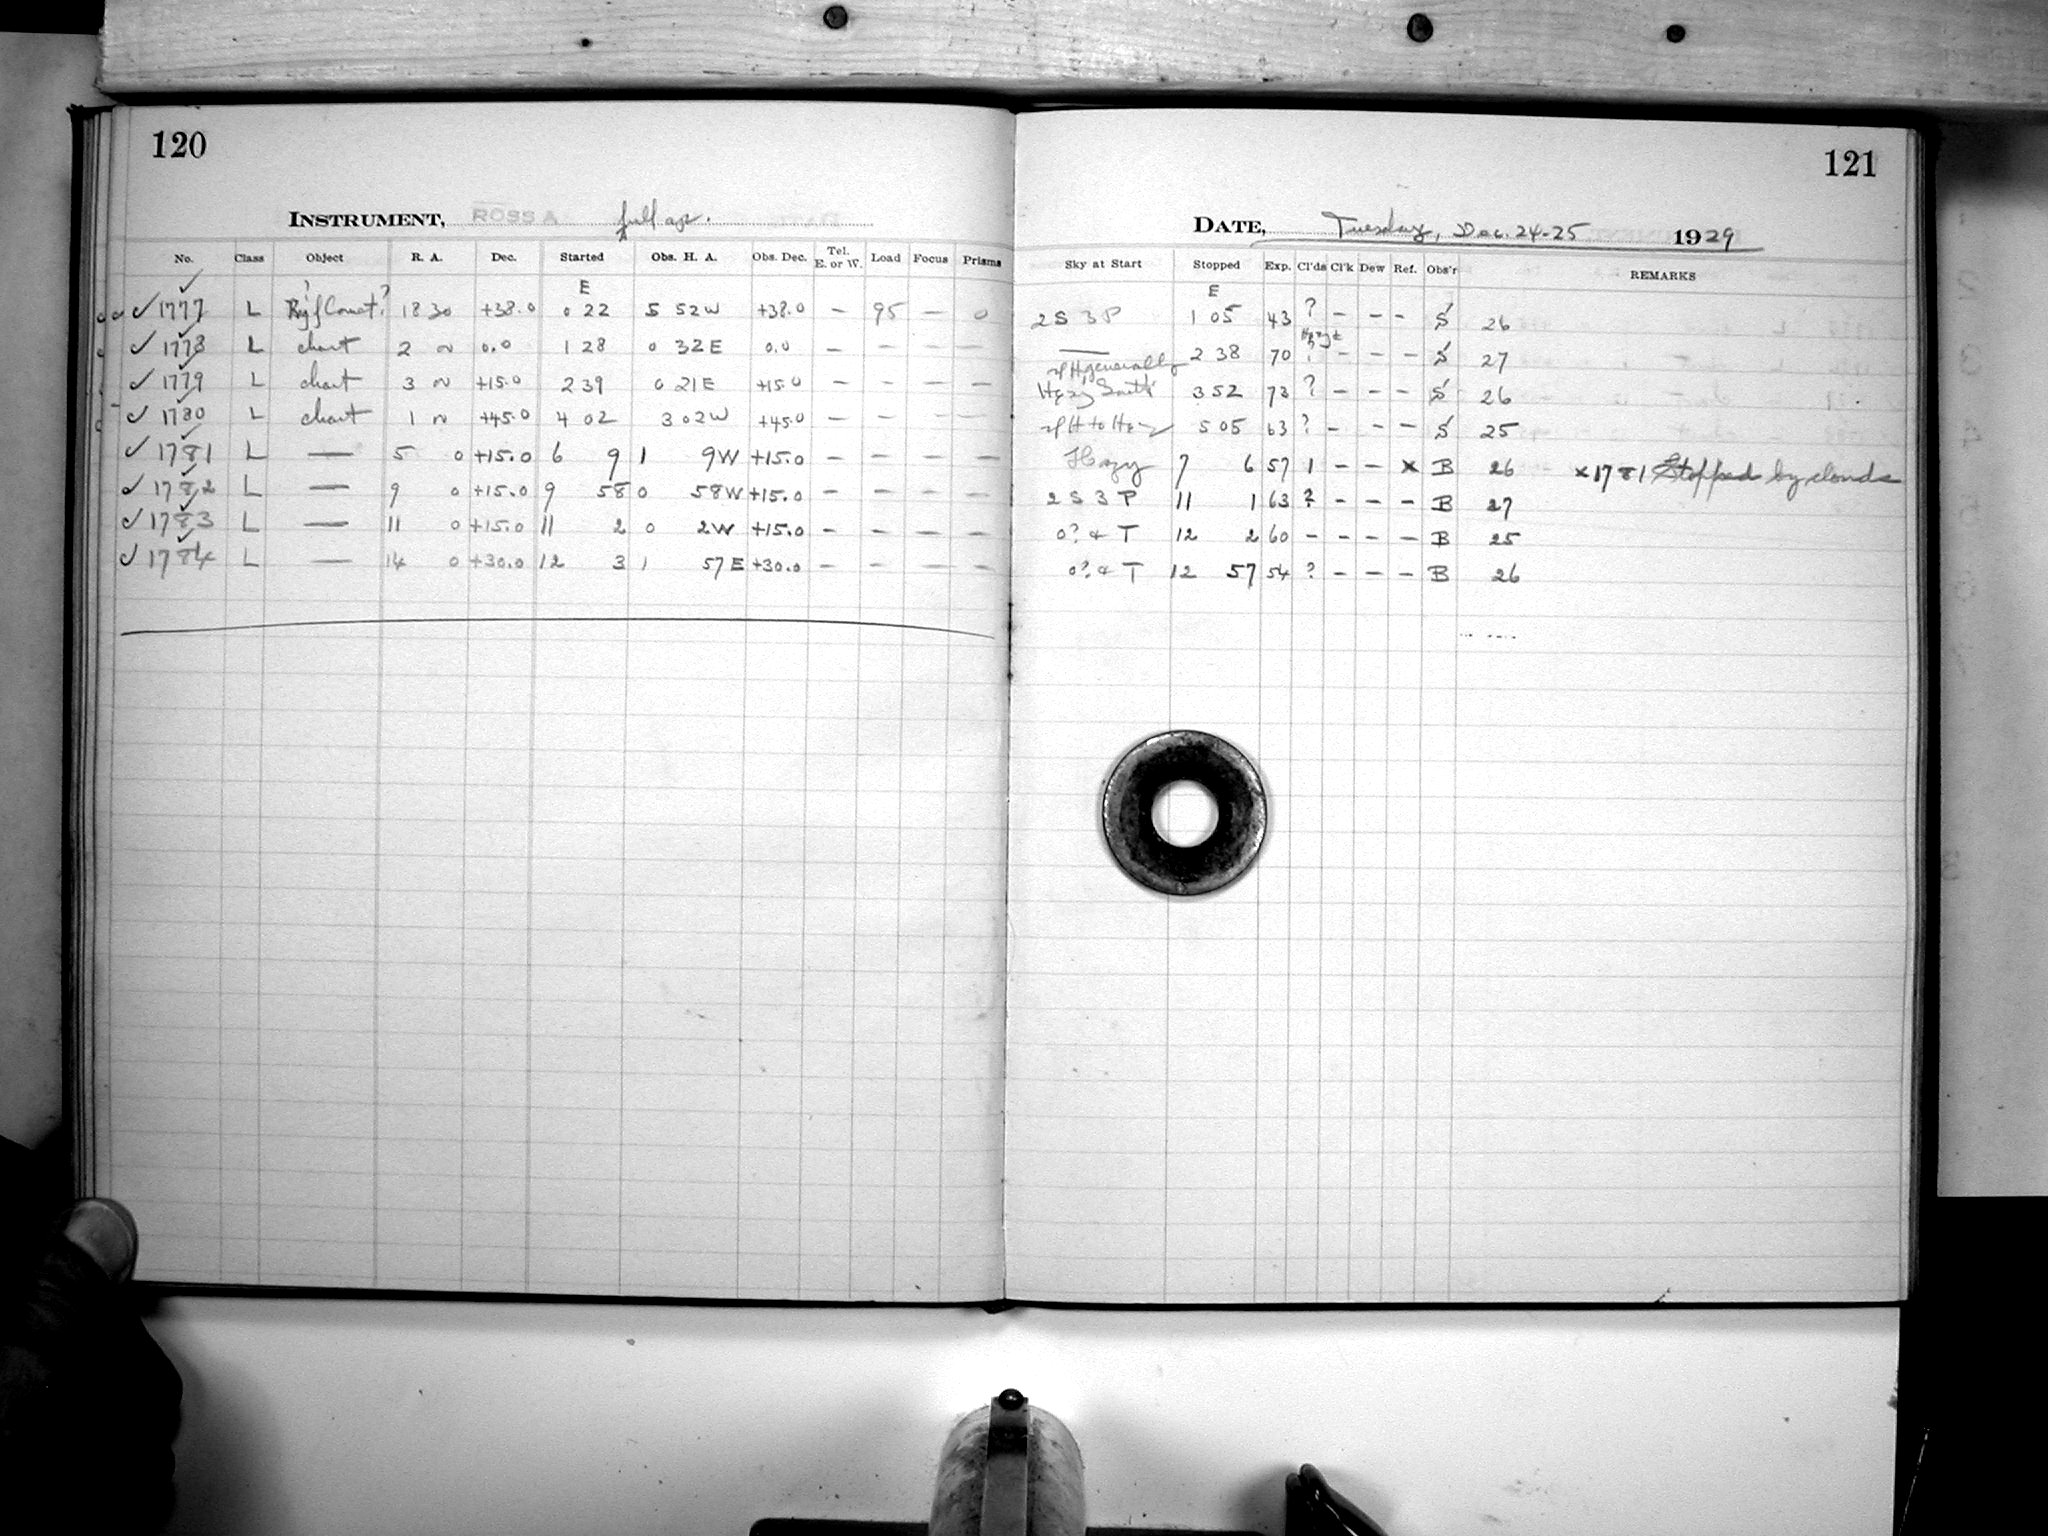 120
INSTRUMENT, ROSS A full ap.
No. Class Object R. A. Dec. Started Obs. H. A. Obs. Dec. Tel. E. or W. Load Focus Prisms
E
✓ 1777 L 18 30 +38.0 0 22 5 52 W +38.0 — 95 — 0
✓ 1778 L chart 2 ~ 0.0 1 28 0 32 E 0.0 — — — —
✓ 1779 L chart 3 ~ +15.0 2 39 0 21 E +15.0 — — — —
✓ 1780 L chart 1 ~ +45.0 4 02 3 02 W +45.0 — — — —
✓ 1781 L — 5 0 +15.0 6 9 1 9 W +15.0 — — — —
✓ 1782 L — 9 0 +15.0 9 58 0 58 W +15.0 — — — —
✓ 1783 L — 11 0 +15.0 11 2 0 2 W +15.0 — — — —
✓ 1784 L — 14 0 +30.0 12 3 1 57 E +30.0 — — — —
121
DATE, Tuesday, Dec. 24-25 1929
Sky at Start Stopped Exp. Cl'ds Cl'k Dew Ref. Obs'r REMARKS
E
2 S 3 P 1 05 43 ? — — — S 26
generally 2 38 70 ? — — — S 27
Hazy 3 52 73 ? — — — S 26
5 05 63 ? — — — S 25
Hazy 7 6 57 1 — — x B 26 x 1781 Stopped by clouds
2 S 3 P 11 1 63 ? — — — B 27
0? & T 12 2 60 — — — — B 25
0? & T 12 57 54 ? — — — B 26